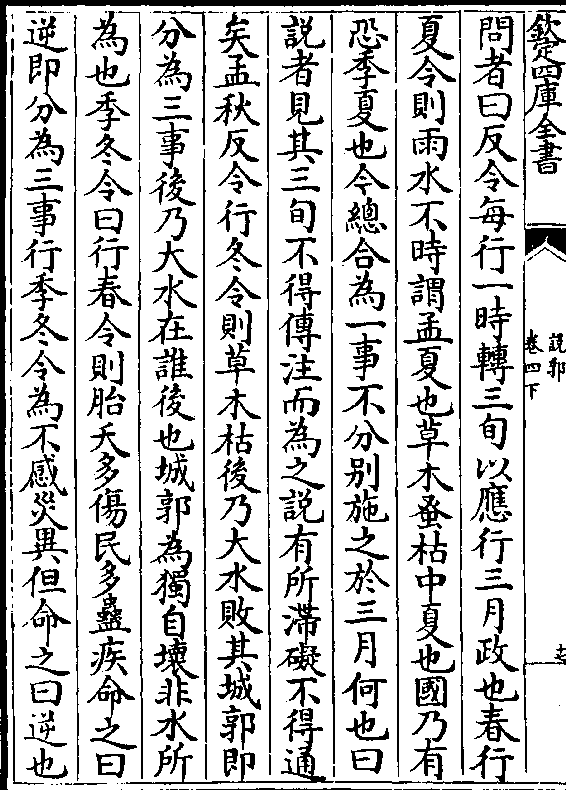 欽定四庫全書
說郛
卷四下
問者曰反令每行一時轉三旬以應行三月政也春行
夏令則雨水不時謂孟夏也草木蚤枯中夏也國乃有
恐季夏也今總合為一事不分別施之於三月何也曰
說者見其三旬不得傳注而為之說有所滯礙不得通
矣孟秋反令行冬令則草木枯後乃大水敗其城郭即
分為三事後乃大水在誰後也城郭為獨自壞非水所
為也季冬令曰行春令則胎夭多傷民多蠱疾命之曰
逆即分為三事行季冬令為不感災異但命之曰逆也